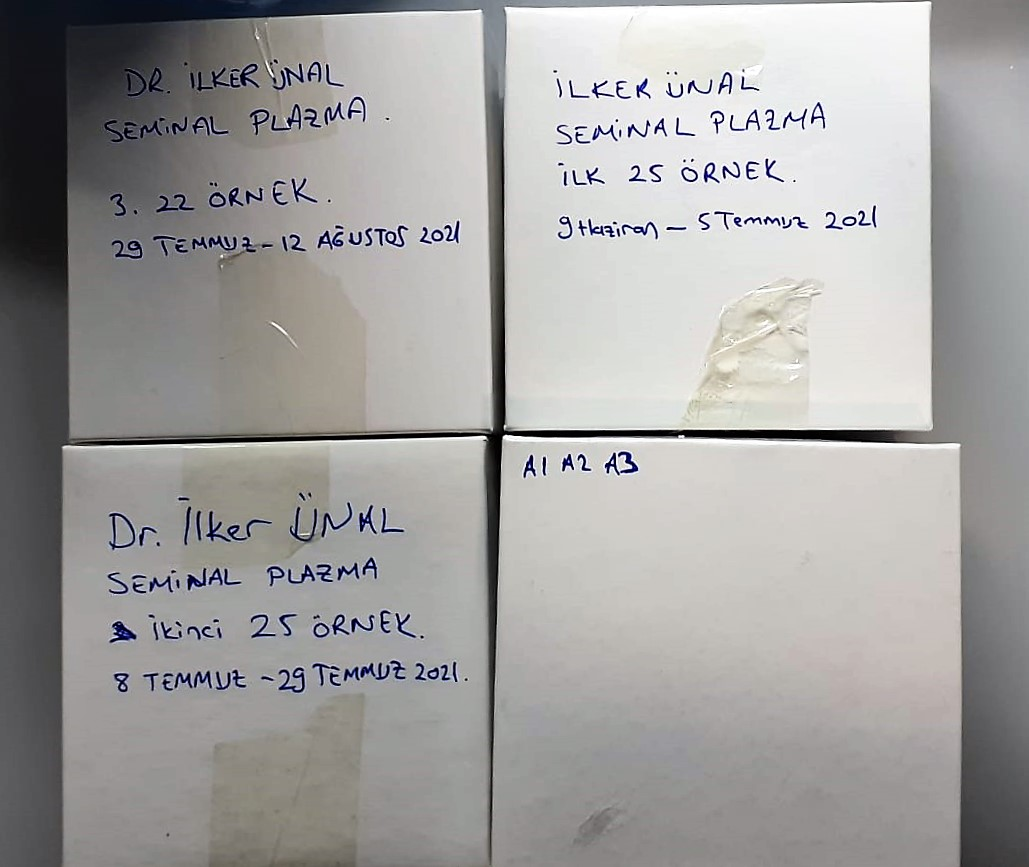 DR. İLKER ÜNAL
SEMİNAL PLAZMA.
3. 22 ÖRNEK.
29 TEMMUZ - 12 AĞUSTOS 2021
İLKER ÜNAL
SEMİNAL PLAZMA
İLK 25 ÖRNEK.
9 Haziran - 5 Temmuz 2021
Dr. İlker ÜNAL
SEMİNAL PLAZMA
İkinci 25 ÖRNEK.
8 TEMMUZ - 29 TEMMUZ 2021.
A1 A2 A3